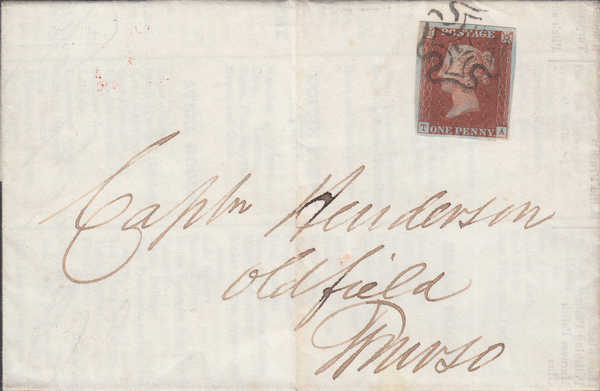 POSTAGE
ONE PENNY
T A
Captn Henderson
Oldfield
Thurso